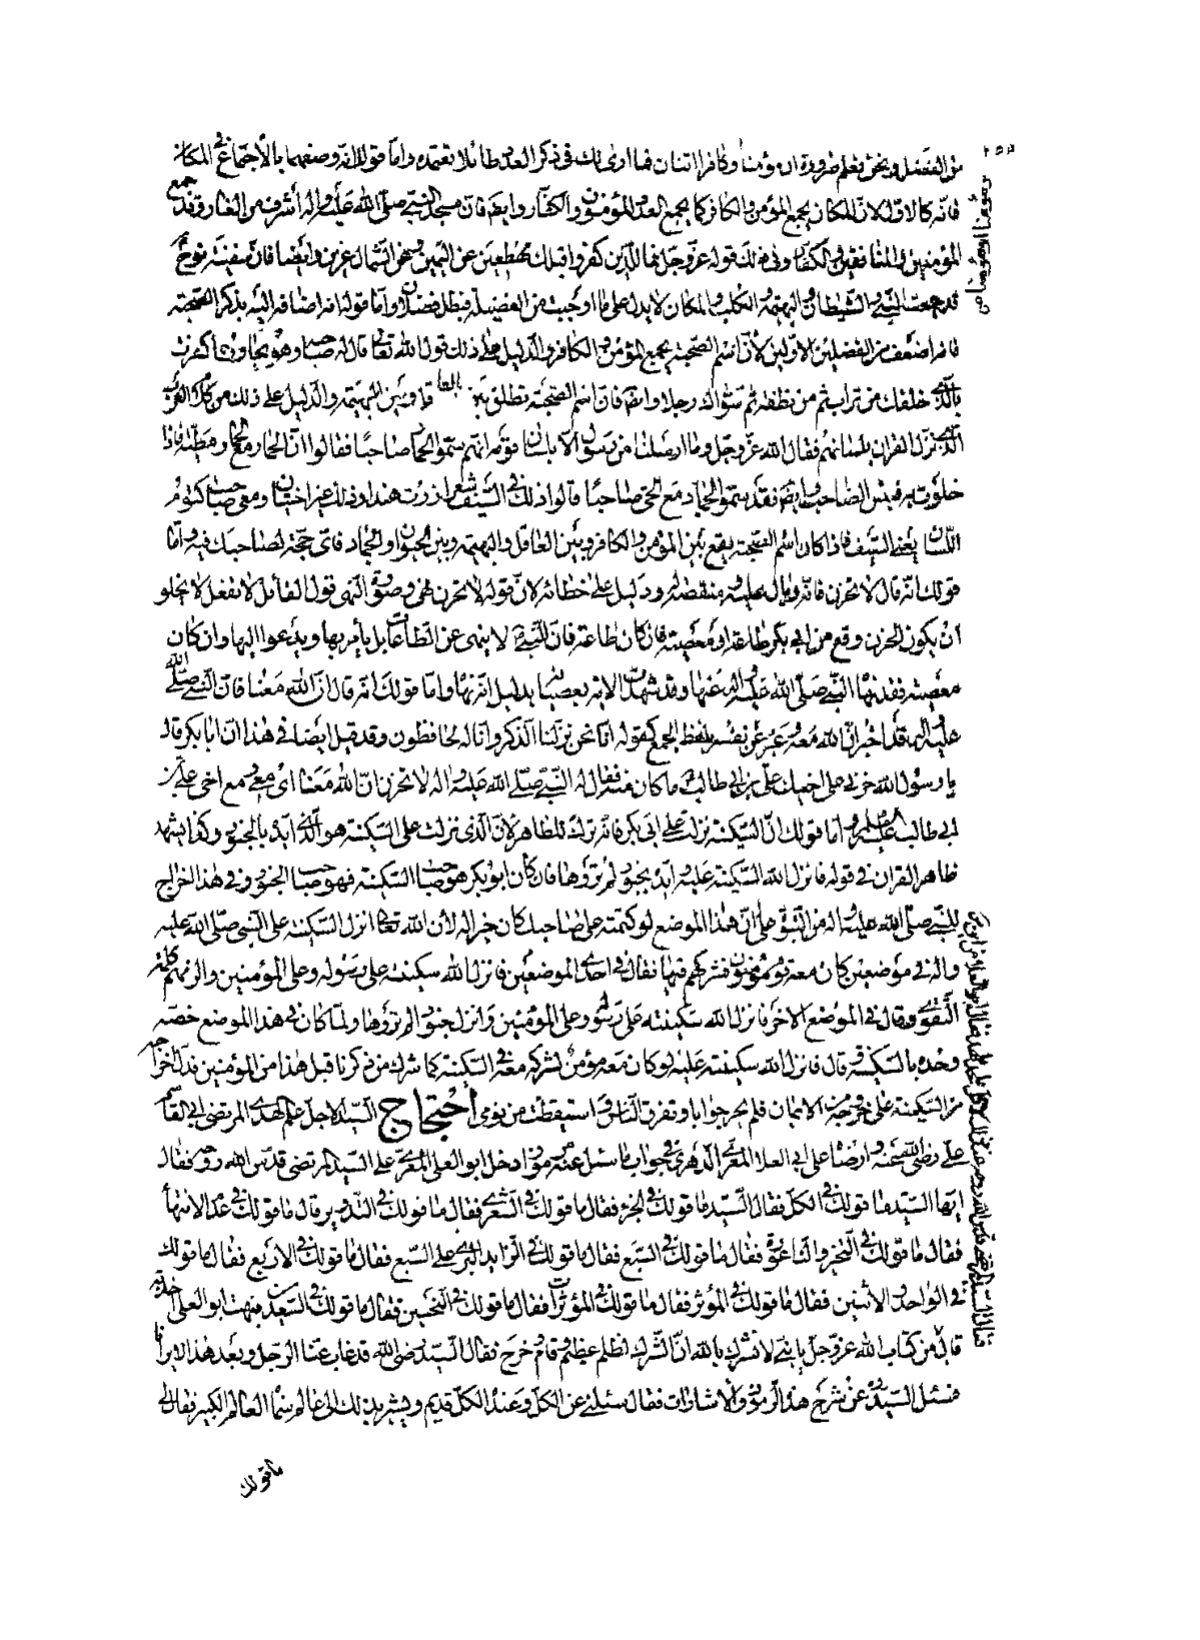 من الفضل ونحن نعلم ضرورة ان مؤمنا وكافرا اثنان فما ارى لك فى ذكر العدد طائلا تعتمده واما قولك انه وصفهما بالاجتماع فى المكان
فانه كالاول لان المكان يجمع المؤمن والكافر كما يجمع العدد المؤمنون والكفار وايضا فان مسجد النبى صلى الله عليه واله اشرف من الغار وقد جمع
المؤمنين والمنافقين والكفار وفى ذلك قوله عز وجل فما للذين كفروا قبلك مهطعين عن اليمين وعن الشمال عزين وايضا فان سفينة نوح
قد جمعت النبى والشيطان والبهيمة والكلب والمكان لا يدل على ما اوجبت من الفضيلة فبطل فضلان واما قولك انه اضافه اليه بذكر الصحبة
فانه اضعف من الفضلين الاولين لان اسم الصحبة يجمع المؤمن والكافر والدليل على ذلك قول الله تعالى قال له صاحبه وهو يحاوره اكفرت
بالذى خلقك من تراب ثم من نطفة ثم سواك رجلا وايضا فان اسم الصحبة تطلق بين العاقل وبين البهيمة والدليل على ذلك من كلام العرب
الذى نزل القران بلسانهم فقال الله عز وجل وما ارسلنا من رسول الا بلسان قومه انهم سموا الحمار صاحبا فقالوا ان الحمار مع الحمار مطية فاذا
خلوت به فبئس الصاحب وايضا فقد سموا الجماد مع الحى صاحبا قالوا ذلك فى السيف شعر زرت هندا وذاك غير اختيان ومعى صاحب كتوم
اللسان يعنى السيف فاذا كان اسم الصحبة يقع بين المؤمن والكافر وبين العاقل والبهيمة وبين الحيوان والجماد فاى حجة لصاحبك فيه واما
قولك انه قال لا تحزن فانه وبال عليه ومنقصة له ودليل على خطائه لان قوله لا تحزن نهى وصورة النهى قول القائل لا تفعل لا يخلو
ان يكون الحزن وقع من ابى بكر طاعة او معصية فان كان طاعة فان النبى لا ينهى عن الطاعات بل يأمر بها ويدعوا اليها وان كان
معصية فقد نهاه النبى صلى الله عليه واله عنها وقد شهدت الاية بعصيانه بدليل انه نهاه واما قولك انه قال ان الله معنا فان النبى صلى الله
عليه واله قد اخبر ان الله معه وعبر عن نفسه بلفظ الجمع كقوله انا نحن نزلنا الذكر وانا له لحافظون وقد قيل ايضا فى هذا ان ابا بكر قال
يا رسول الله حزنى على اخيك على بن ابى طالب ما كان منه فقال له النبى صلى الله عليه واله لا تحزن ان الله معنا اى معى ومع اخى على بن
ابى طالب عليه السلام واما قولك ان السكينة نزلت على ابى بكر فانه ترك للظاهر لان الذى نزلت عليه السكينة هو الذى ايده بالجنود وكذا يشهد
ظاهر القران فى قوله فانزل الله السكينة عليه وايده بجنود لم تروها فان كان ابو بكر هو صاحب السكينة فهو صاحب الجنود وفى هذا اخراج
للنبى صلى الله عليه واله من النبوة على ان هذا الموضع لو كتمته على صاحبك كان خيرا له لان الله تعالى انزل السكينة على النبى صلى الله عليه
واله فى موضعين كان معه قوم مؤمنون فشركهم فيها فقال فى احد الموضعين فانزل الله سكينته على رسوله وعلى المؤمنين والزمهم كلمة
التقوى وقال فى الموضع الاخر فانزل الله سكينته على رسوله وعلى المؤمنين وانزل جنودا لم تروها ولما كان فى هذا الموضع خصه
وحده بالسكينة قال فانزل الله سكينته عليه لو كان معه مؤمن لشركه معه فى السكينة كما شرك من ذكرنا قبل هذا من المؤمنين فدل اخراجه
من السكينة على خروجه من الايمان فلم يحر جوابا وتفرق الناس واستيقظت من نومى احتجاج السيد الاجل علم الهدى المرتضى ابى القاسم
على رضى الله عنه وارضاه على ابى العلا المعرى الدهرى فى جواب ما سئل عنه مرموزا دخل ابو العلى المعرى على السيد المرتضى قدس الله روحه فقال
ايها السيد ما قولك فى الكل فقال السيد ما قولك فى الجزء فقال ما قولك فى الشعرى فقال ما قولك فى التدوير قال ما قولك فى عدم الانتهاء
فقال ما قولك فى التحيز والناعورة فقال ما قولك فى السبع فقال ما قولك فى الزايد البرى على السبع فقال ما قولك فى الاربع فقال ما قولك
فى الواحد والاثنين فقال ما قولك فى المؤثر فقال ما قولك فى المؤثرات فقال ما قولك فى النحسين فقال ما قولك فى السعدين فبهت ابو العلى
قال من كتاب الله عز وجل يا بنى لا تشرك بالله ان الشرك لظلم عظيم وقام وخرج فقال السيد رضى الله قد غاب عنا الرجل وبعد هذا لا يرانا
فسئل السيد عن شرح هذه الرموز والاشارات فقال سئلنى عن الكل وعنده الكل قديم ويشير بذلك الى عالم سماه العالم الكبير فقال لى
ما قولك